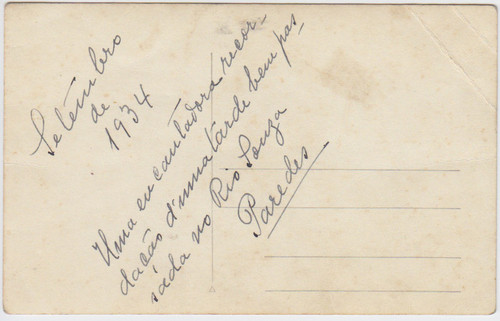 Setembro
de
1934
Uma encantadora recor-
dação d'uma tarde bem pas-
sada no Rio Souza
Paredes